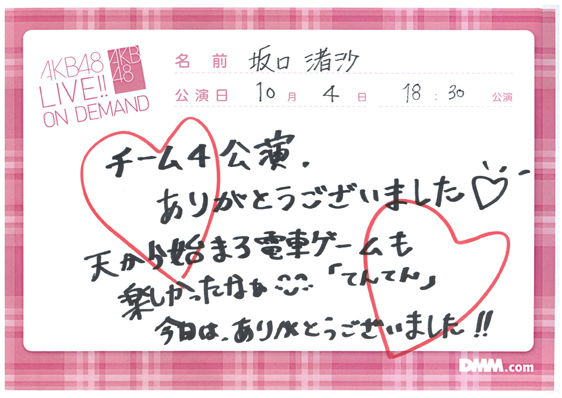 AKB48
LIVE!!
ON DEMAND
AKB
48
名前 坂口 渚沙
公演日 10月 4日 18:30 公演
チーム4公演.
ありがとうございました♡
天から始まる電車ゲームも
楽しかったなぁ「てんてん」
今日は、ありがとうございました!!
DMM.com